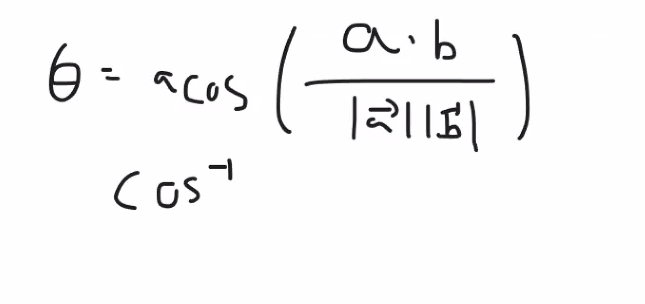 θ = acos ( a · b / |a⃗| |b⃗| )
cos⁻¹